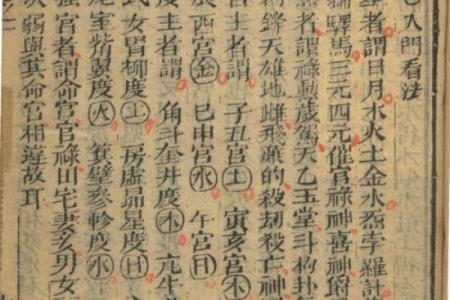 入門看法
者謂日月木火土金水炁孛羅計
驛馬三元四元催官祿神喜神爵
者謂祿勳歲駕天乙玉堂斗杓卦
鋒天雄地雌飛廉的殺劫殺亡神
主者謂 子丑宮土 寅亥宮木
辰酉宮金 巳申宮水 午宮日
度主者謂 角斗奎井度木 亢牛
氐女胃柳度土 房虛昴星度日
尾室觜翼度火 箕壁參軫度水
強宮者謂命宮官祿田宅妻妾男女
弱與其命宮相違故耳